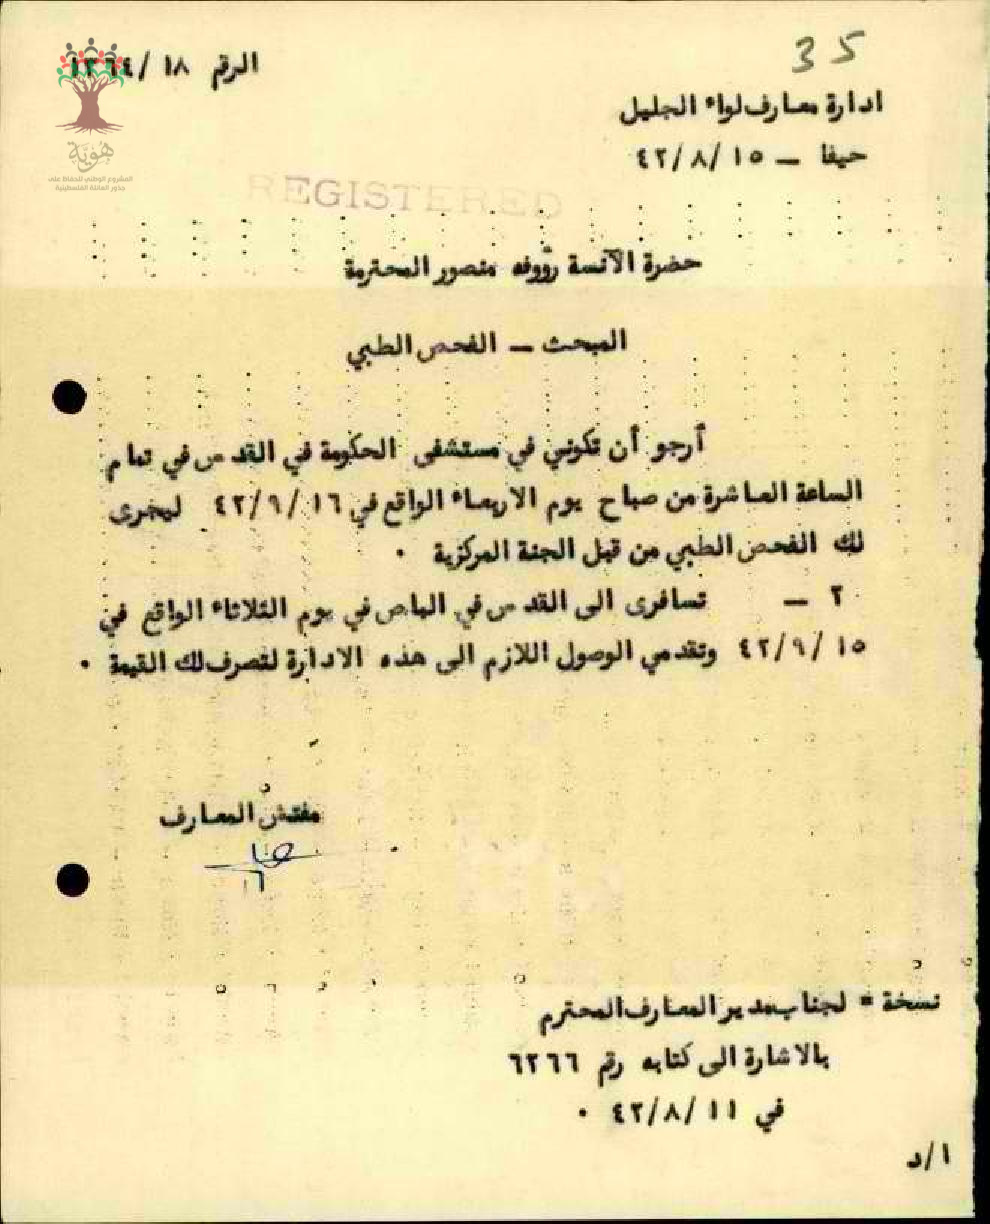 35
الرقم ١٨/١٢٦٤
هُوِيَّة
المشروع الوطني للحفاظ على
جذور العائلة الفلسطينية
ادارة معارف لواء الجليل
حيفا – ٤٢/٨/١٥
REGISTERED
حضرة الآنسة رؤوفه منصور المحترمة
المبحث – الفحص الطبي
أرجو أن تكوني في مستشفى الحكومة في القدس في تمام
الساعة العاشرة من صباح يوم الاربعاء الواقع في ٤٢/٩/١٦ ليجرى
لك الفحص الطبي من قبل الجنة المركزية ٠
٢ – تسافرى الى القدس في الباص في يوم الثلاثاء الواقع في
٤٢/٩/١٥ وتقدمي الوصول اللازم الى هذه الادارة لتصرف لك القيمة ٠
مفتش المعارف
نسخة = لجناب مدير المعارف المحترم
بالاشارة الى كتابه رقم ٦٢٦٦
في ٤٢/٨/١١ ٠
ا/د